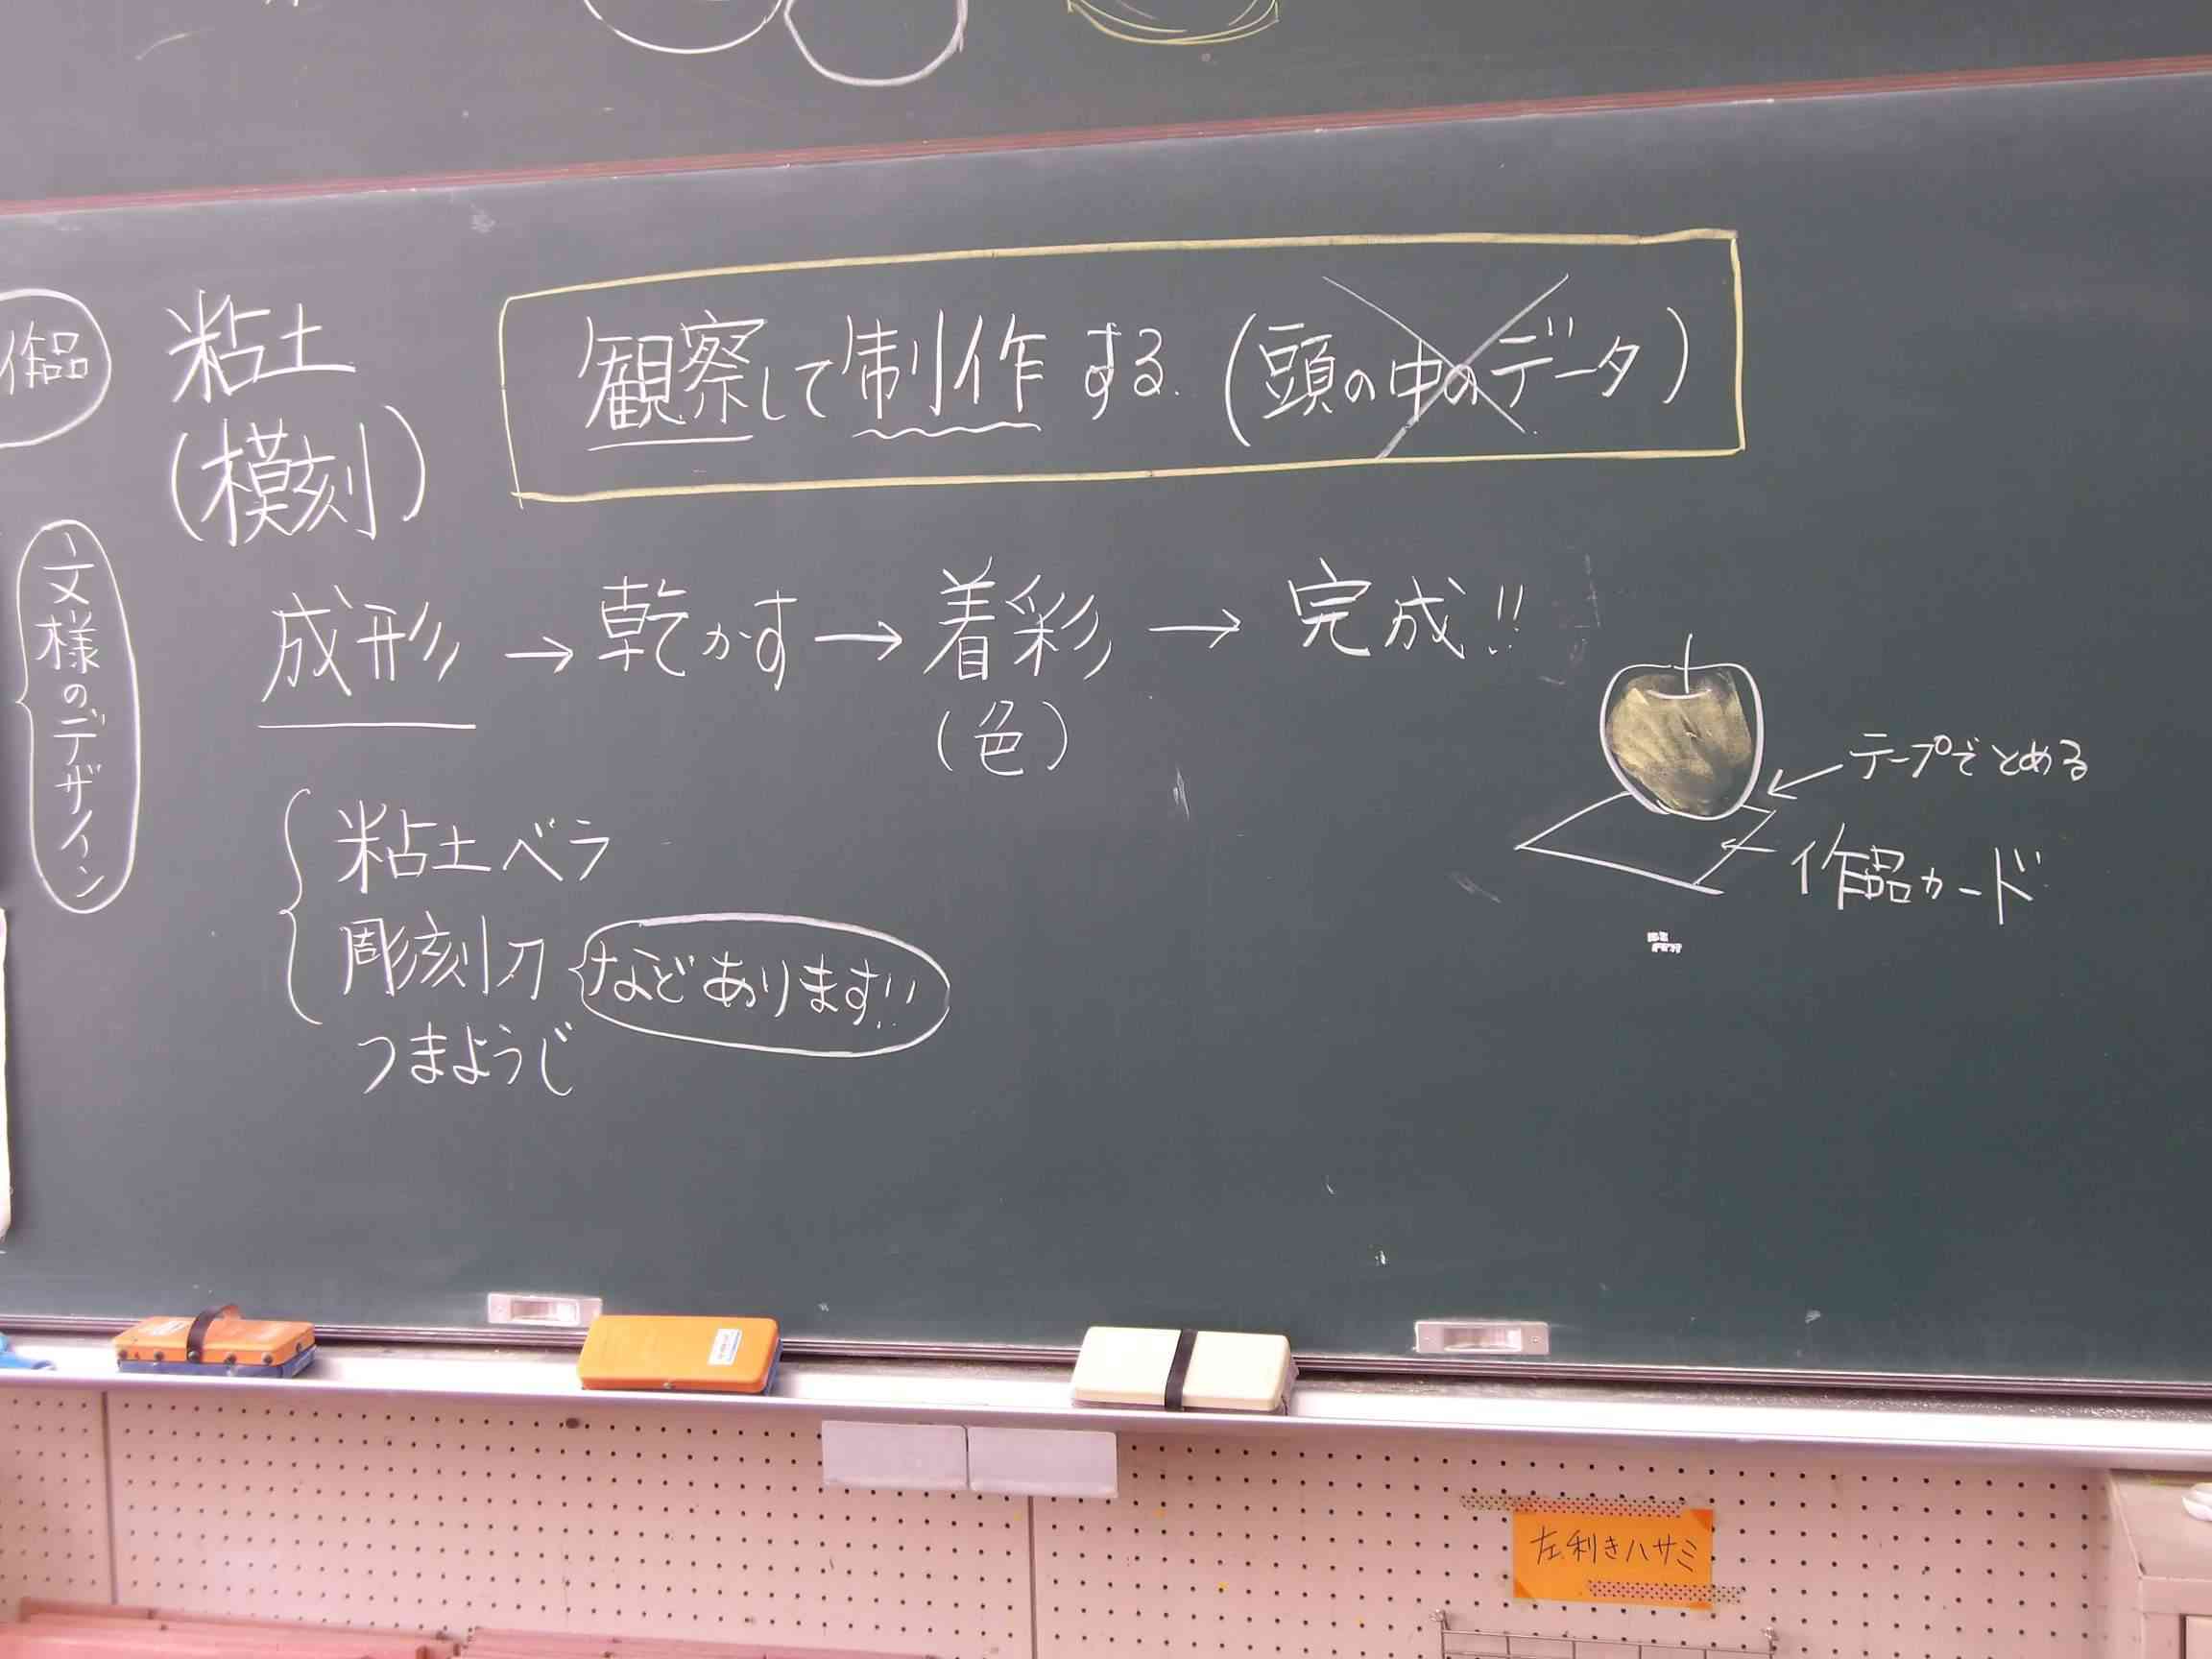 作品
文様のデザイン
粘土
(模刻)
観察して制作する.(頭の中のデータ)
成形→乾かす→着彩→完成!!
(色)
粘土ベラ
彫刻刀 などあります!!
つまようじ
テープでとめる
作品カード
左利きハサミ